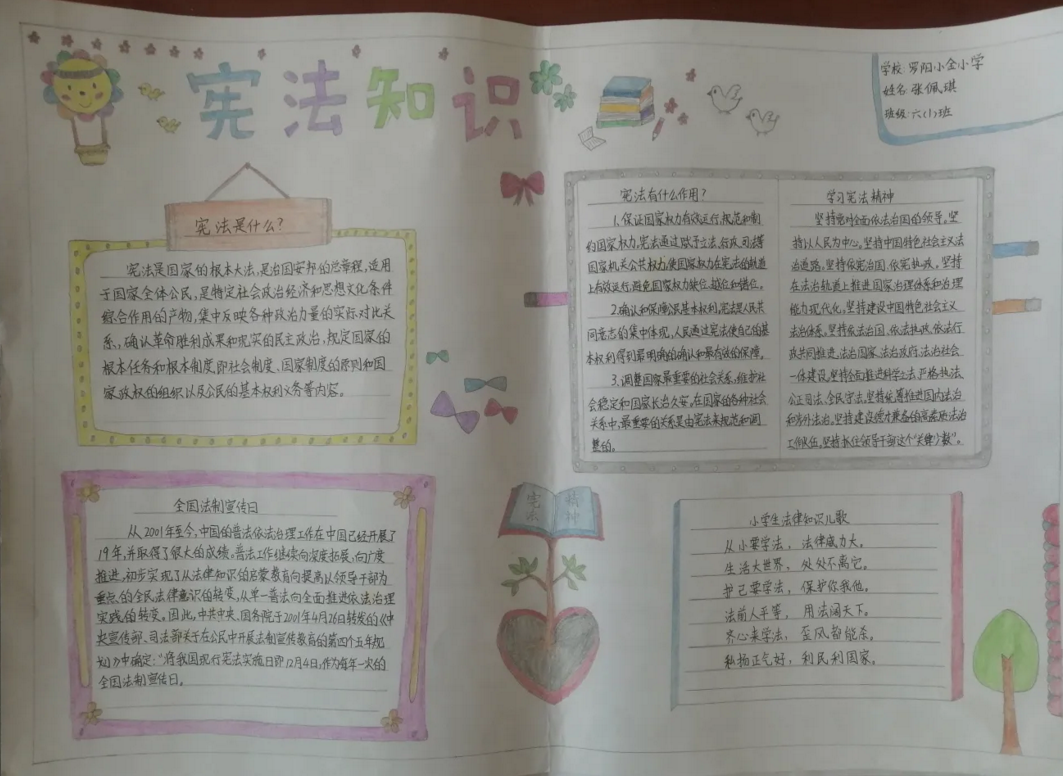 宪法知识
学校:罗阳小金小学
姓名:张佩琪
班级:六(1)班
宪法是什么?
宪法是国家的根本大法,是治国安邦的总章程,适用
于国家全体公民,是特定社会政治经济和思想文化条件
综合作用的产物,集中反映各种政治力量的实际对比关
系,确认革命胜利成果和现实的民主政治,规定国家的
根本任务和根本制度,即社会制度、国家制度的原则和国
家政权的组织以及公民的基本权利义务等内容。
宪法有什么作用?
1.保证国家权力有效运行,规范和制
约国家权力,宪法通过赋予立法、行政、司法等
国家机关公共权力,使国家权力在宪法的轨道
上有效运行,避免国家权力缺位、越位和错位。
2.确认和保障公民基本权利,宪法是人民共
同意志的集中体现,人民通过宪法使自己的基
本权利得到最明确的确认和最有效的保障。
3.调整国家最重要的社会关系,维护社
会稳定和国家长治久安,在国家的各种社会
关系中,最重要的关系是由宪法来规范和调
整的。
学习宪法精神
坚持党对全面依法治国的领导,坚
持以人民为中心,坚持中国特色社会主义法
治道路,坚持依宪治国、依宪执政。坚持
在法治轨道上推进国家治理体系和治理
能力现代化,坚持建设中国特色社会主义
法治体系,坚持依法治国、依法执政、依法行
政共同推进,法治国家、法治政府、法治社会
一体建设,坚持全面推进科学立法、严格执法、
公正司法、全民守法,坚持统筹推进国内法治
和涉外法治,坚持建设德才兼备的高素质法治
工作队伍,坚持抓住领导干部这个“关键少数”。
全国法制宣传日
从2001年至今,中国的普法依法治理工作在中国已经开展了
19年,并取得了很大的成绩。普法工作继续向深度拓展,向广度
推进,初步实现了从法律知识的启蒙教育向提高以领导干部为
重点的全民法律意识的转变,从单一普法向全面推进依法治理
实践的转变。因此,中共中央、国务院于2001年4月26日转发的《中
央宣传部、司法部关于在公民中开展法制宣传教育的第四个五年规
划》中确定:“将我国现行宪法实施日即12月4日,作为每年一次的
全国法制宣传日。
宪法
精神
小学生法律知识儿歌
从小要学法,法律威力大。
生活大世界,处处不离它。
护己要学法,保护你我他。
法前人平等,用法闯天下。
齐心来学法,歪风智能杀。
弘扬正气好,利民利国家。